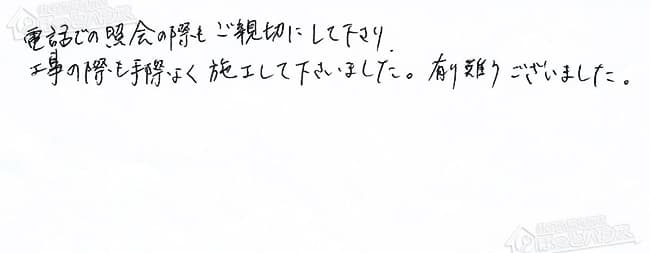 電話での照会の際もご親切にして下さり、
工事の際も手際よく施工して下さいました。有り難うございました。